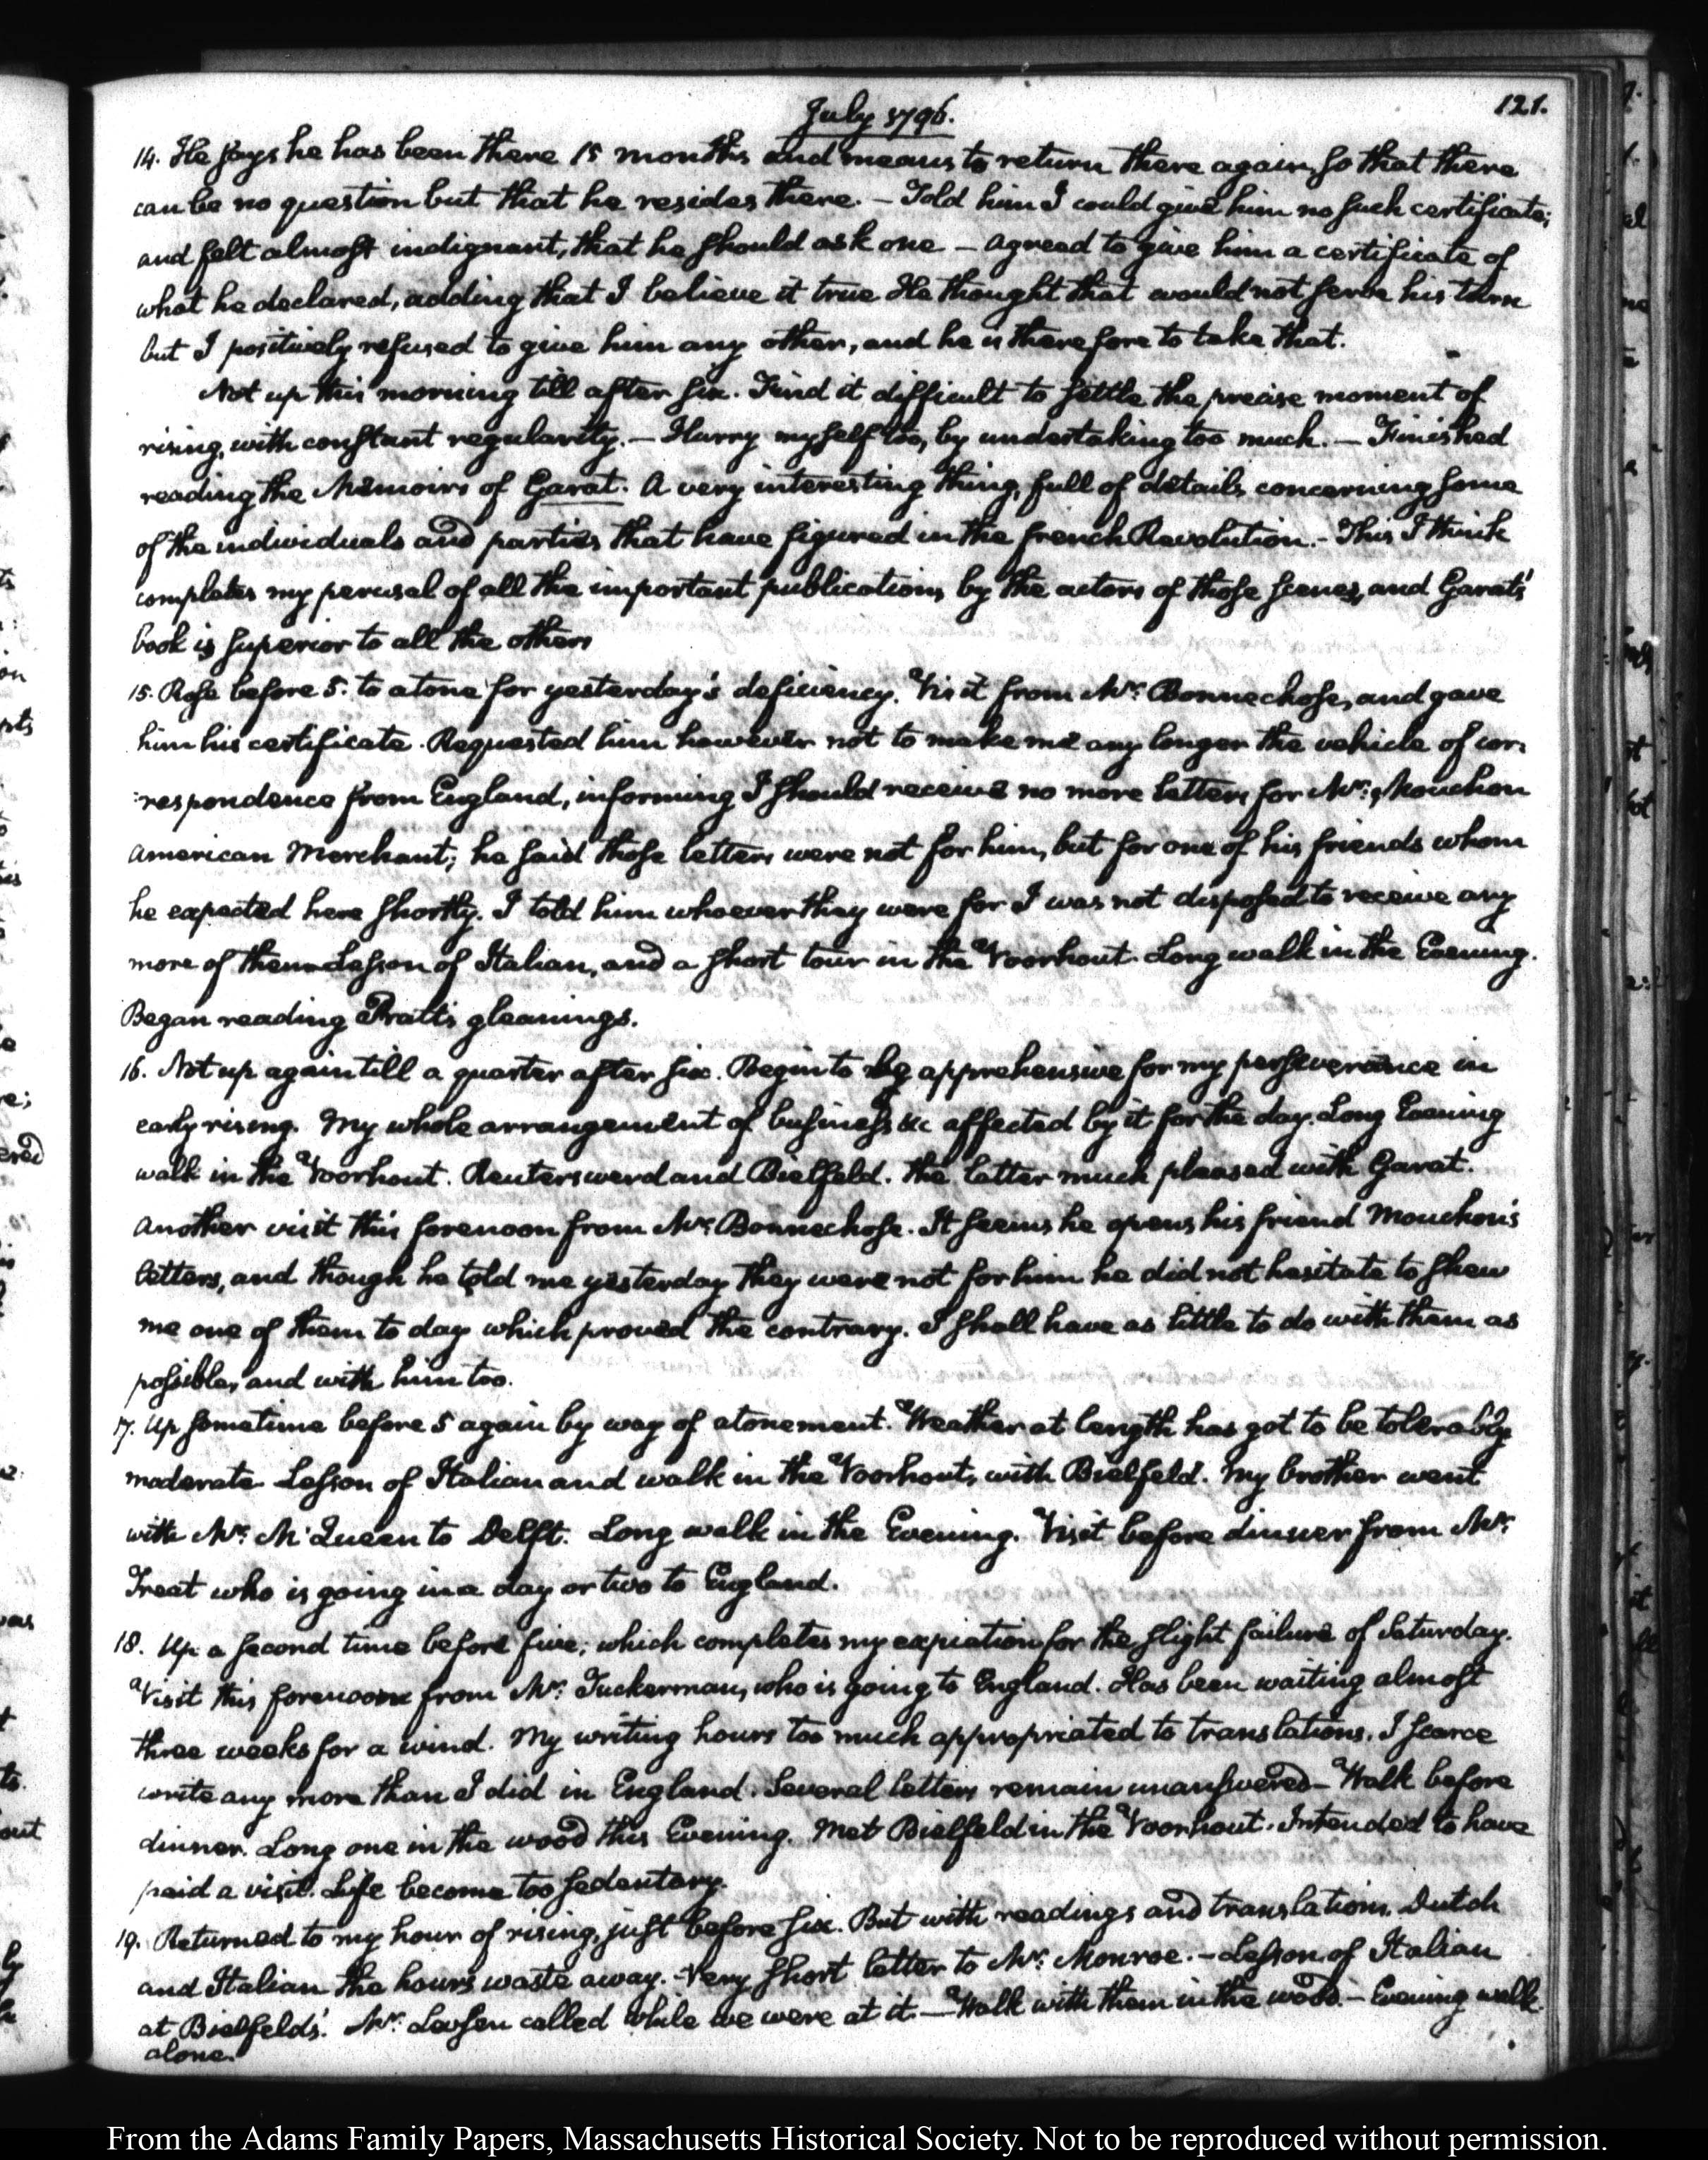 July 1796.
121.
14. He says he has been there 15 months and means to return there again, so that there
can be no question but that he resides there. — Told him I could give him no such certificate;
and felt almost indignant, that he should ask one — agreed to give him a certificate of
what he declared, adding that I believe it true He thought that would not serve his turn
but I positively refused to give him any other, and he is therefore to take that.
Not up this morning till after six. Find it difficult to settle the precise moment of
rising, with constant regularity. — Hurry myself too, by undertaking too much. — Finished
reading the Memoirs of Garat. A very interesting thing, full of details concerning some
of the individuals and parties that have figured in the french Revolution. - This I think
completes my perusal of all the important publications by the actors of those scenes, and Garat's
book is superior to all the others
15. Rose before 5. to atone for yesterday's deficiency. Visit from Mr: Bonnechose, and gave
him his certificate. Requested him however not to make me any longer the vehicle of cor:
:respondence from England, informing I should receive no more letters for Mr: Mouchon
American Merchant; he said those letters were not for him, but for one of his friends whom
he expected here shortly. I told him whoever they were for I was not disposed to receive any
more of them — Lesson of Italian, and a short tour in the Voorhout. Long walk in the Evening.
Began reading Pratt's gleanings.
16. Not up again till a quarter after six. Begin to be apprehensive for my perseverance in
early rising. My whole arrangement of business &c affected by it for the day. Long Evening
walk in the Voorhout. Reuterswerd and Bielfeld. The latter much pleased with Garat.
Another visit this forenoon from Mr: Bonnechose. It seems he opens his friend Mouchon's
letters, and though he told me yesterday they were not for him he did not hesitate to shew
me one of them to day which proved the contrary. I shall have as little to do with them as
possible, and with him too.
17. Up sometime before 5 again by way of atonement. Weather at length has got to be tolerably
moderate. Lesson of Italian and walk in the Voorhout, with Bielfeld. My brother went
with Mr: McQueen to Delft. Long walk in the Evening. Visit before dinner from Mr:
Treat who is going in a day or two to England.
18. Up a second time before five; which completes my expiation for the slight failure of Saturday.
Visit this forenoon from Mr: Tuckerman, who is going to England. Has been waiting almost
three weeks for a wind. My writing hours too much appropriated to translations. I scarce
write any more than I did in England. Several letters remain unanswered — Walk before
dinner. Long one in the wood this Evening. Met Bielfeld in the Voorhout. Intended to have
paid a visit. Life become too sedentary.
19. Returned to my hour of rising, just before six. But with readings and translations, Dutch
and Italian the hours waste away. - Very short letter to Mr: Monroe. - Lesson of Italian
at Bielfelds'. Mr: Levsen called while we were at it. — Walk with them in the wood. — Evening walk
alone.
From the Adams Family Papers, Massachusetts Historical Society. Not to be reproduced without permission.